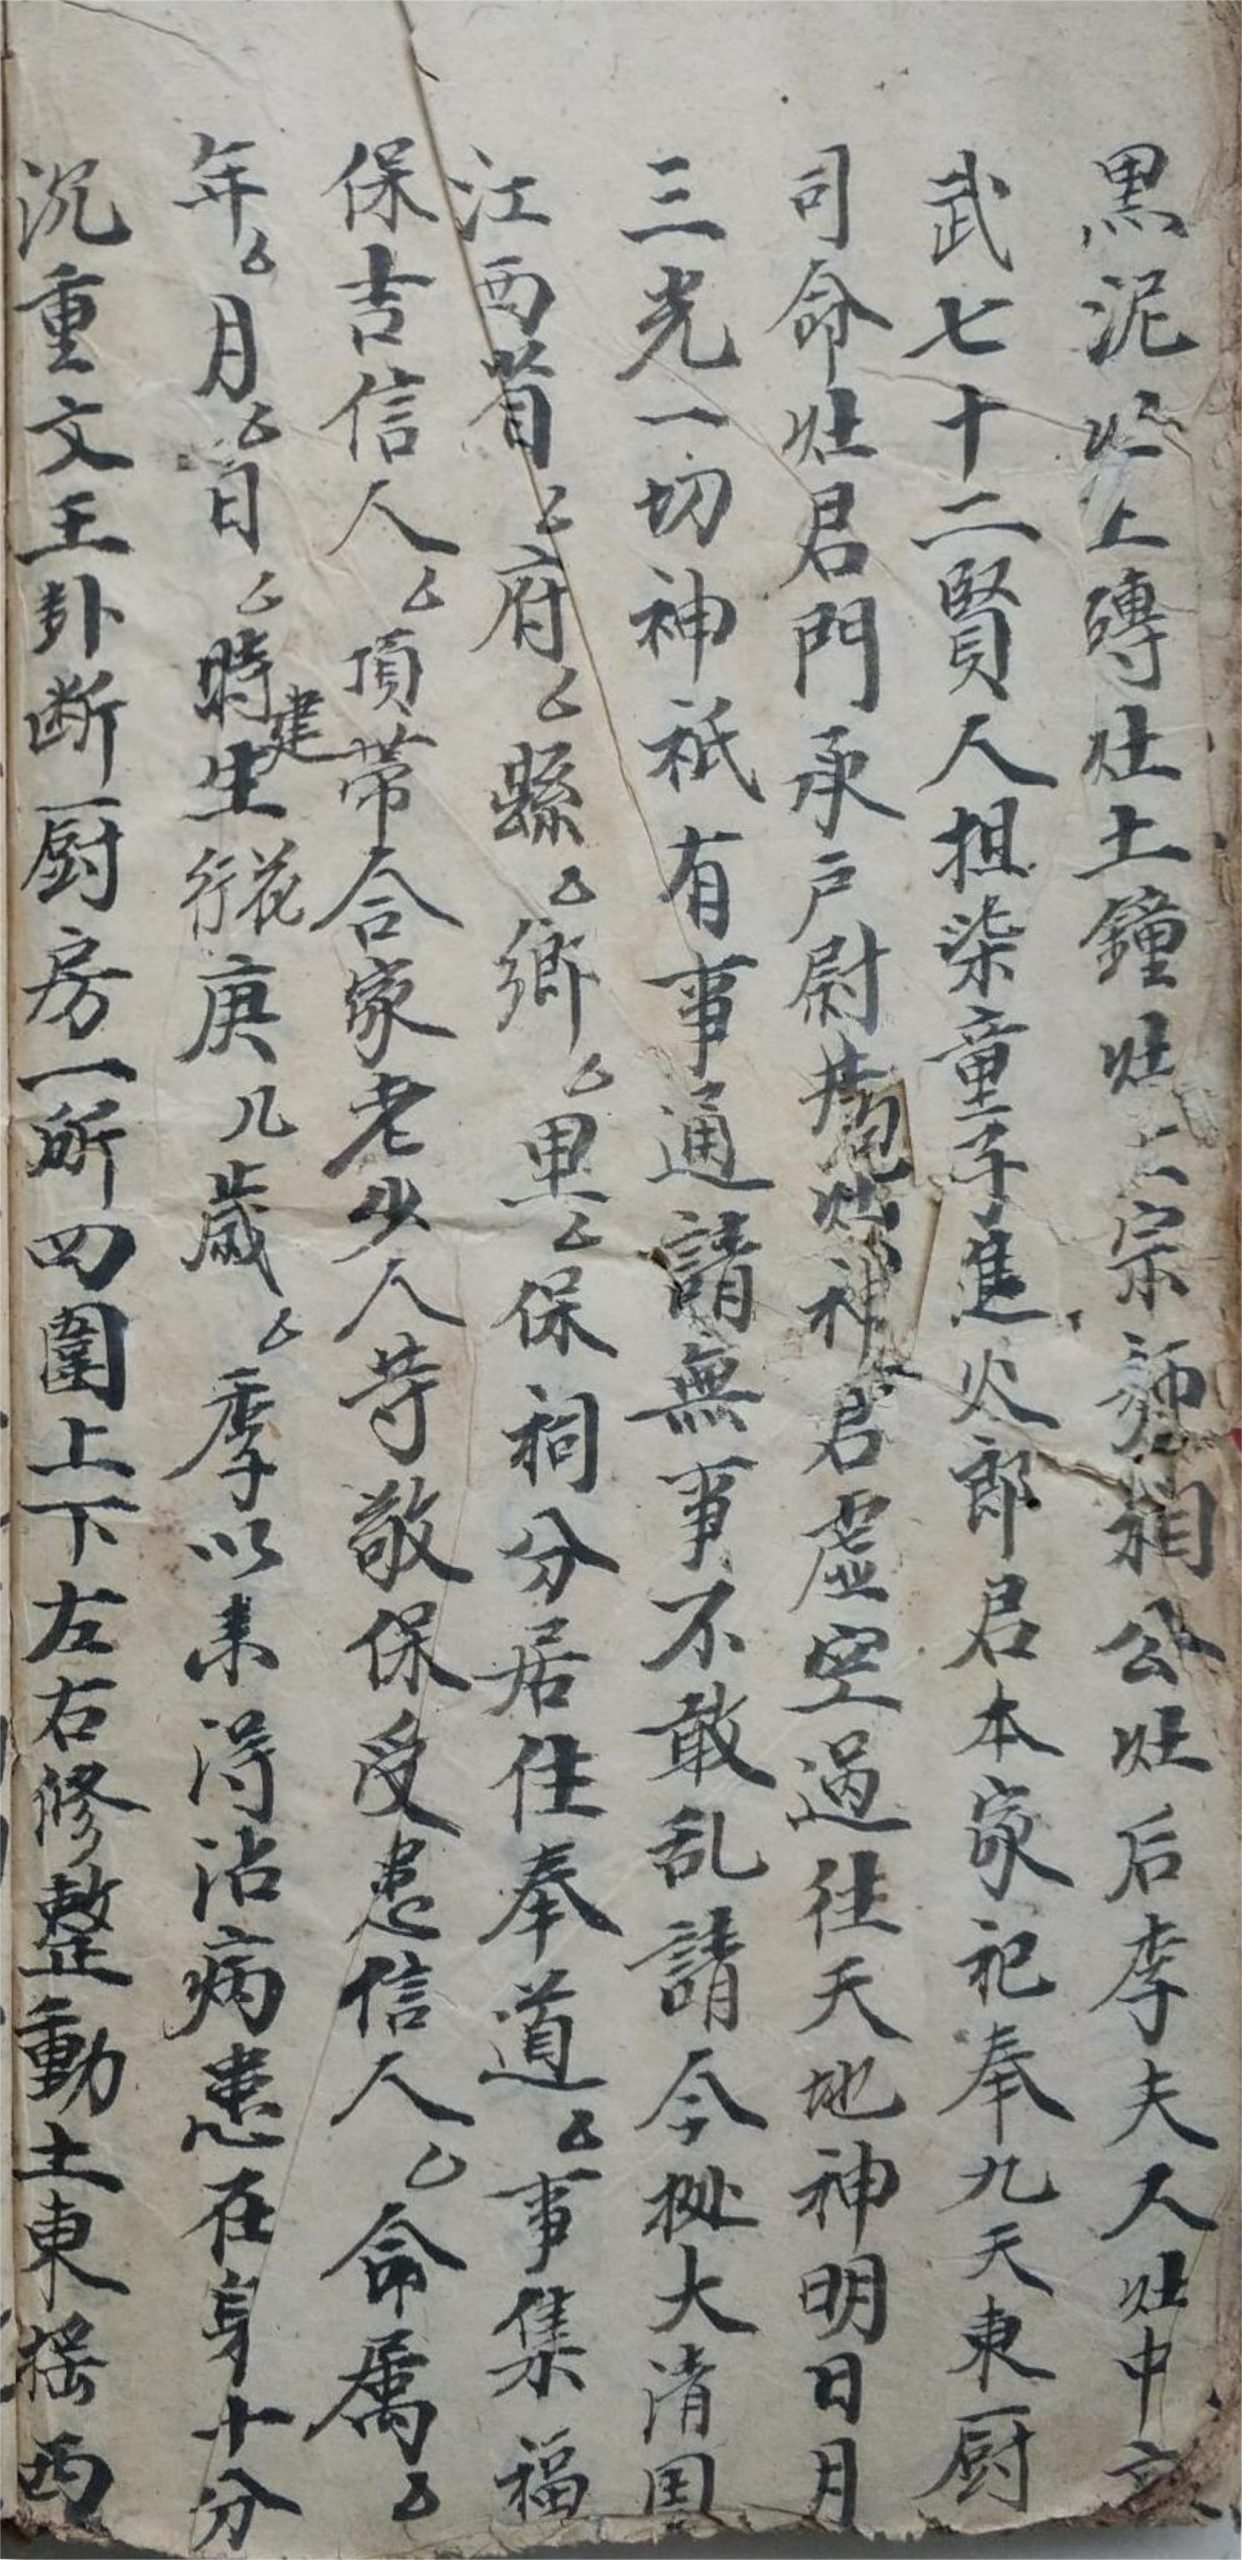 黒泥灶上磚灶土鐘灶上宗師相公灶后李夫人灶中文
武七十二賢人担柒童子進火郎君本家祀奉九天東厨
司命灶君門承戶尉井灶神君虚空過往天地神明日月
三光一切神祇有事通請無事不敢乱請今攽大清国
江西省厶府厶縣厶鄉厶里厶保祠分居住奉道厶事集福
保吉信人厶頂帯合家老少人等敬保受患信人厶命属厶
年厶月厶日厶時建生行花庚几歲厶季以来得沾病患在身十分
沉重文王卦断厨房一所四圍上下左右修整動土東摇西